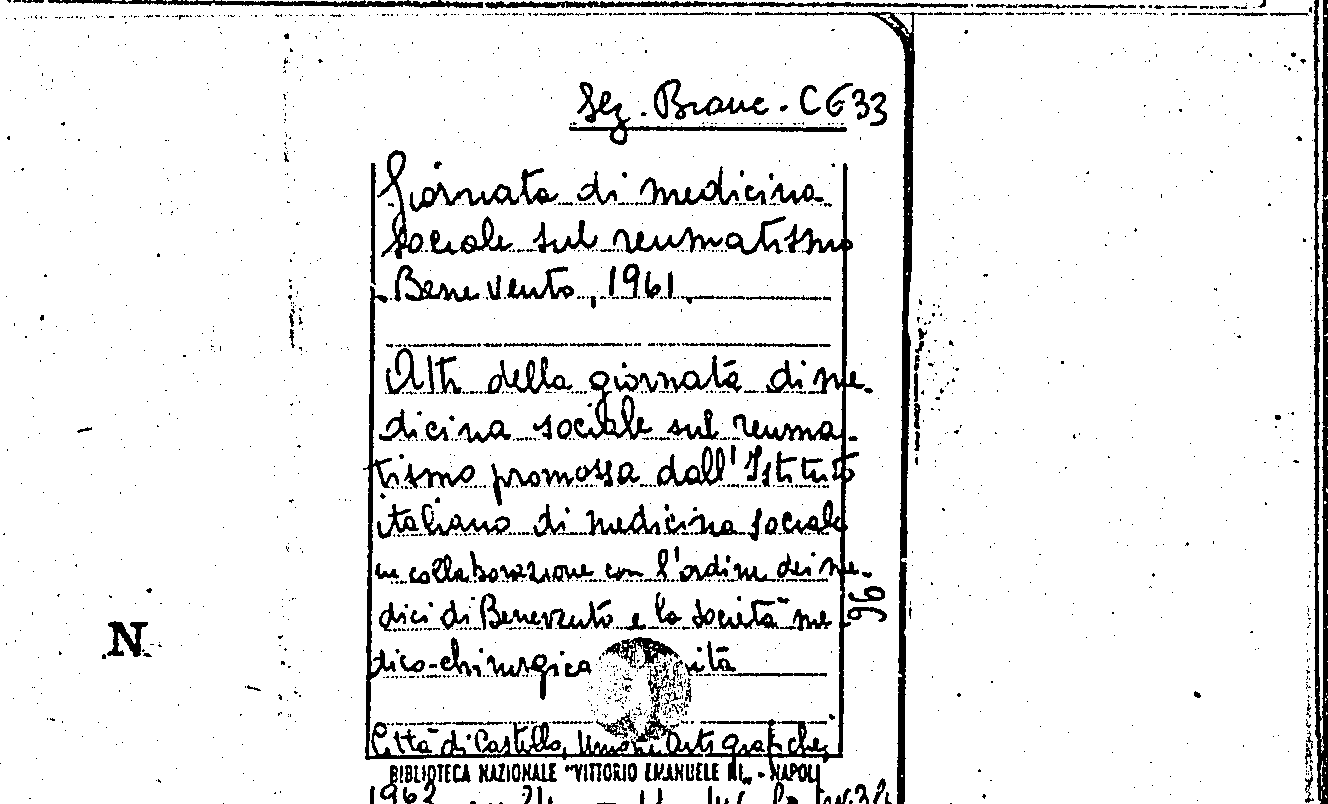 Sez. Branc. C G 33
Giornata di medicina
sociale sul reumatismo
Benevento, 1961.
Atti della giornata di me-
dicina sociale sul reuma-
tismo promossa dall'Istituto
italiano di medicina sociale
in collaborazione con l'ordine dei me-
dici di Benevento e la società me
dico-chirurgica
96
N
Città di Castello, Unione Arti grafiche,
BIBLIOTECA NAZIONALE "VITTORIO EMANUELE III" - NAPOLI
1962